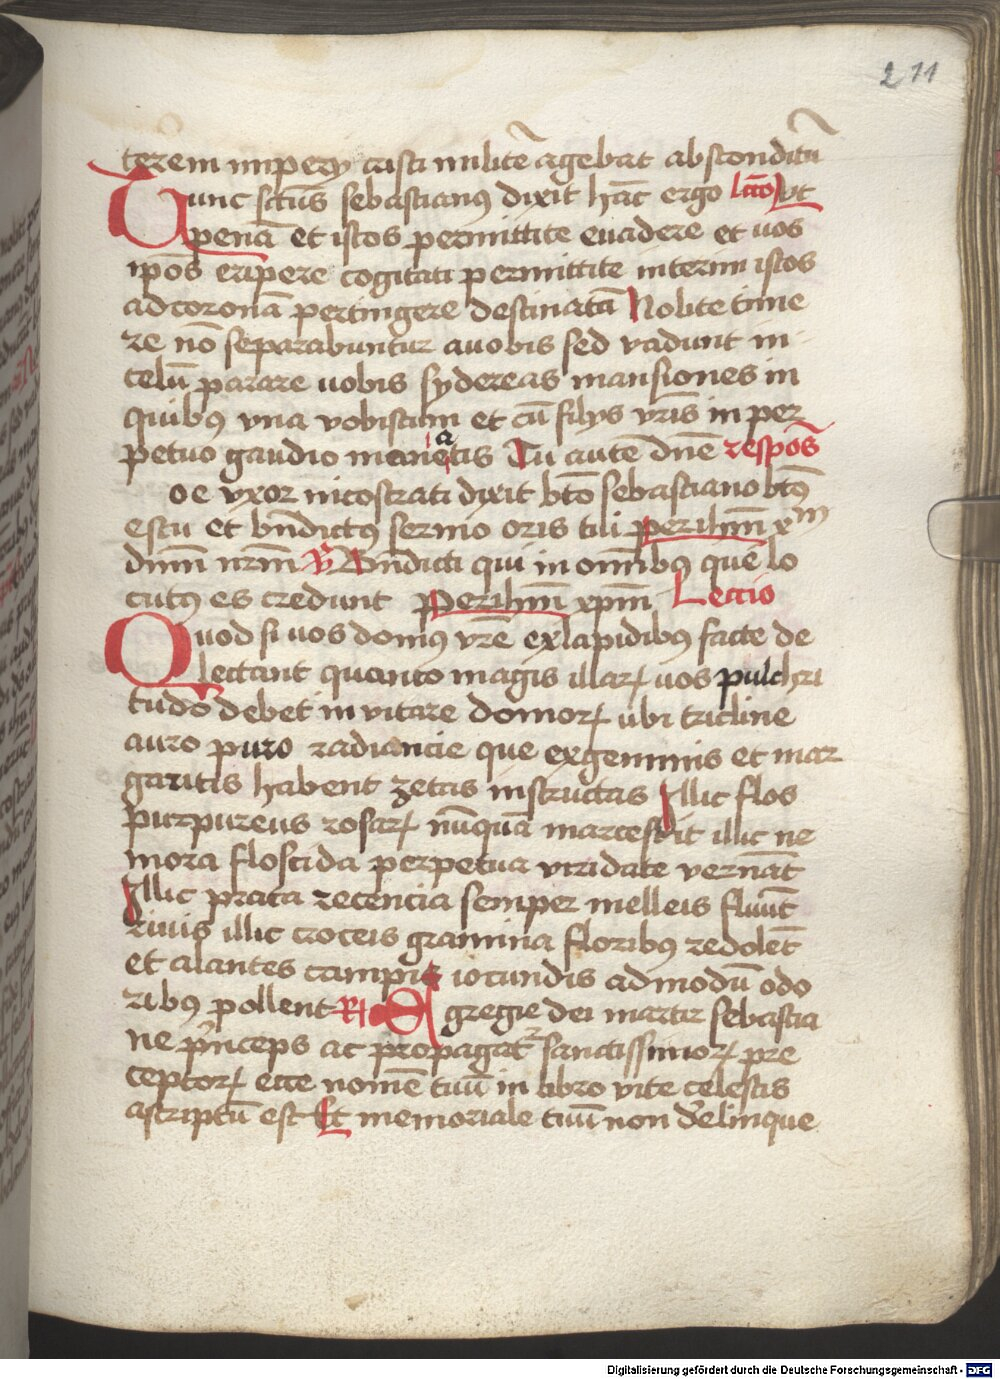 211
terem impery cristi militē agebat absconditū
Tunc sctūs sebastianus dixit hāc ergo lcīo Ut
penā et istos permittite euadere et uos
ipōs eripere cogitati permittite interim istos
ad coronā pertingere destinatā Nolite time
re nō separabuntur a uobis sed vadunt in
celū parare uobis sydereas mansiones in
quibus vna vobiscum et cū filys vrīs in per
petuo gaudio maneatis Tu autē dnē respōs
oe vxor nicostrati dixit btō sebastiano btūs
es tu et bndictus sermo oris tui per ihm̄ xm
dnm̄ nrm̄ V Bndicti qui in omībus que lo
cutus es credunt Per ihm̄ xpm̄ Lectio
Quod si uos domus vrē ex lapidibus facte de
lectant quanto magis illarꝝ uos pulchri
tudo debet invitare domorꝝ ubi tricline
auro puro radiancie que ex gemmis et mar
garitis habent zetas instructas Illic flos
purpureus rosarꝝ nūquā marcessit illic ne
mora floscida perpetua viridate vernāt
Illic prata recencia semper melleis fluūt
riuis illic croceis gramina floribus redolēt
et alantes campis iocundis admodū odo
ribus pollent R Egregie dei martir sebastia
ne princeps ac propagatʳ sanctissimorꝝ pre
ceptorꝝ ecce nomē tuū in libro vite celestis
ascriptū est Et memoriale tuū non derelinque
Digitalisierung gefördert durch die Deutsche Forschungsgemeinschaft - DFG